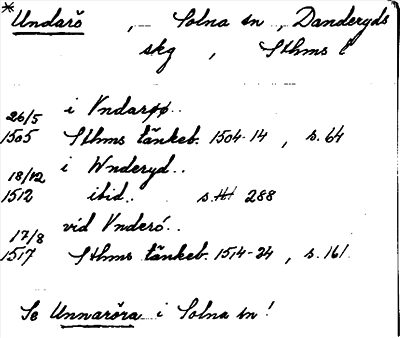 *Undarö , Solna sn , Danderyds
skg , Sthms l
26/5 i Vndarøø..
1505 Sthms tänkeb. 1504-14 , s. 64
18/12 i Wnderyd..
1512 ibid.. s. 288
17/8 vid Vnderö..
1517 Sthms tänkeb. 1514-24 , s. 161
Se Unnaröra i Solna sn!